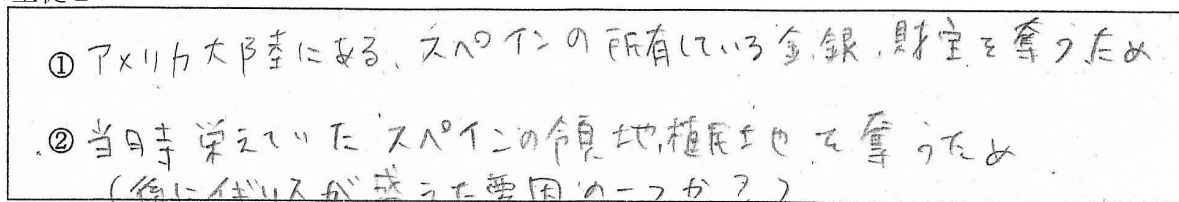 ① アメリカ大陸にある、スペインの所有している金.銀.財宝を奪うため
② 当時栄えていたスペインの領地,植民地を奪うため
(後にイギリスが栄えた要因の一つか?)